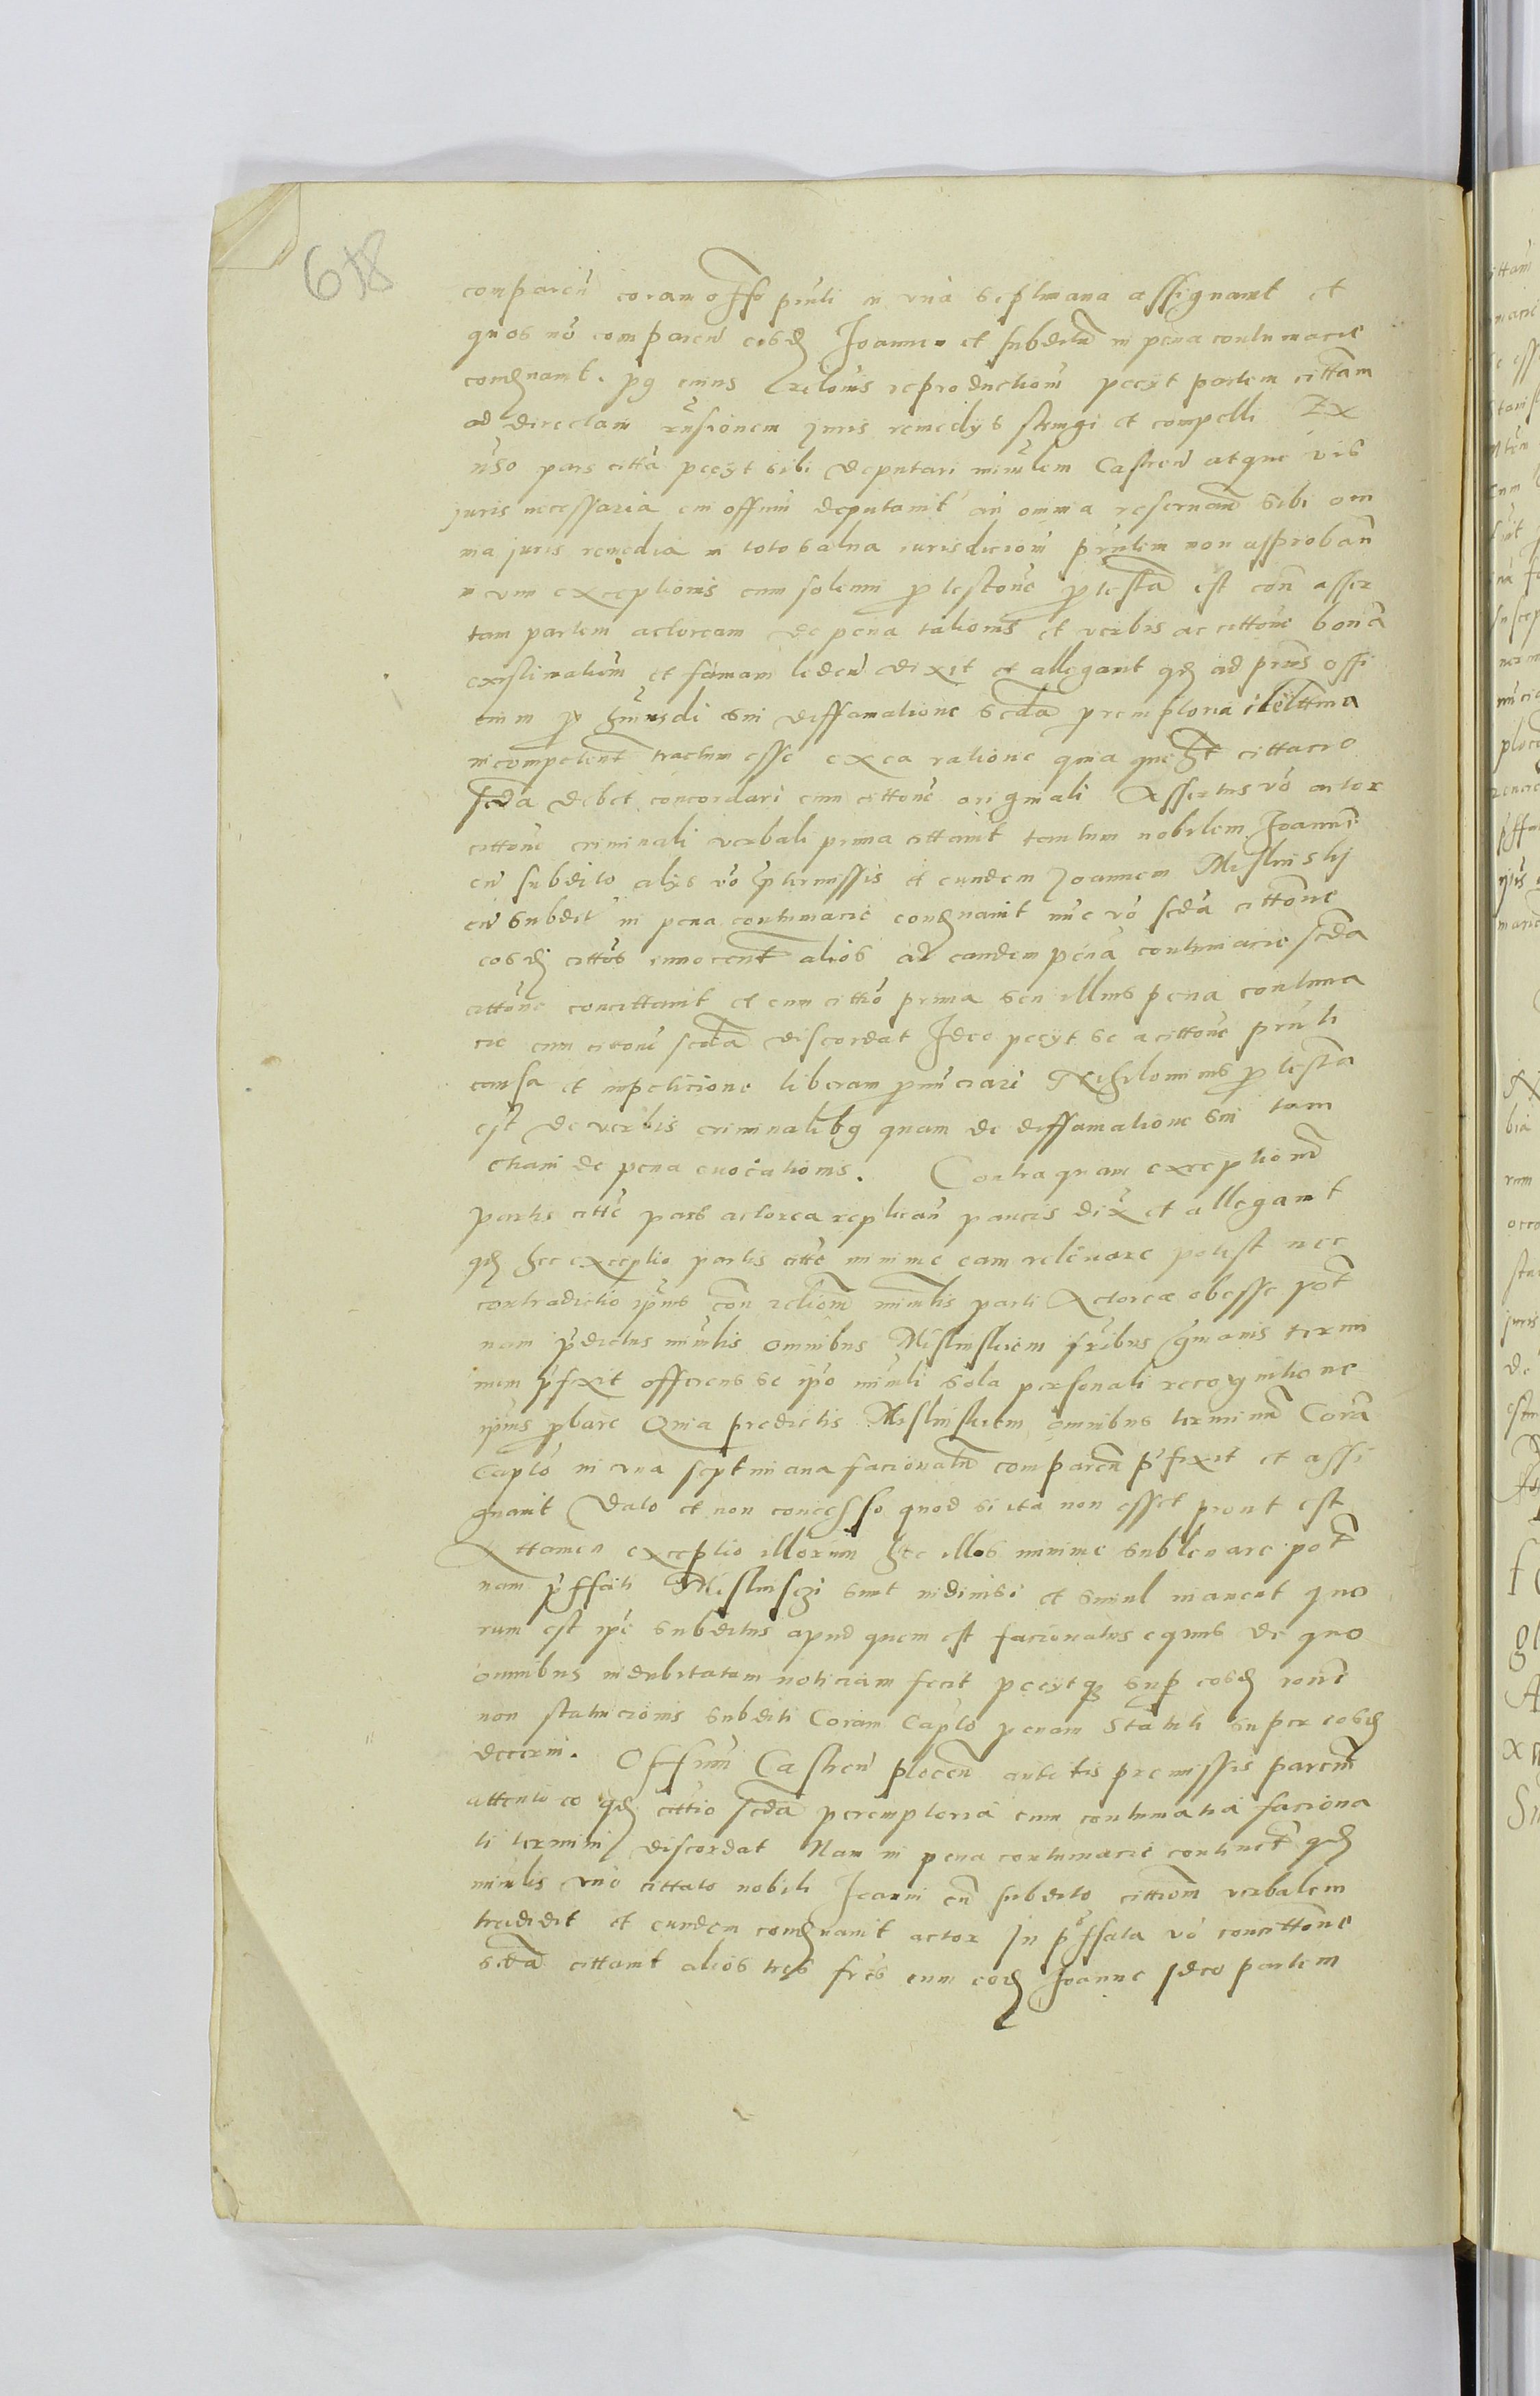 618
comparen coram offo pnti in vna septimana assignavit et
quos no comparen eosd Joannem et subditu in pena contumacie
condnavit. pq eius relonis reproductioni peciit partem cittam
ad directam rnsionem juris remedijs stringi et compelli Ex
pars citta peciit sibi deputari minrlem Castren atque
juris necessaria cui offum deputavit omnia reservan sibi om
nia juris remedia in toto salva iurisdicioni pntem non approban
exceptionis cum solenni protestone protesta est con asser
tam partem actoream de pena talionis et verbis ac cittone bona
existimationem et famam leden dixit et allegavit qd ad pns offi
cium pro hmodi sui diffamatione secda premptoria illittima
incompetent tractum esse ex ea ratione quia quelt cittacio
secda debet concordari cum cittone originali Assertus vo actor
cittone criminali verbali prima cittavit tantum nobilem Joannem
cu subdito alijs vo ptermissis et eundem Joannem Mislinskj
cu subdit in pena contumacie condnavit nuc vo secda cittone
eosd cittos innocent alios ad eandem pena contumacie secda
cittone concittavit et cum cittio prima seu illius pena contuma
cie cum citone secda discordat Ideo peciit se a cittone pnti
causa et inpeticione liberam pnunciari Nihilominus protesta
est de verbis criminalibq quam de diffamatione sui tam
etiam de pena evocationis. Contra quam exceptionem
partis citte pars actorea replican paucis dix et allegavit
qd hec exceptio partis citte minime eam relevare potest nec
contradictio ipius con relionem minrlis parti Actoree obesse pot
nam pdictus minrlis omnibus Mislinskiem fribus gmanis termi
num pfixit offerens se ipo minrli sola personali recognitione
ipius pbare Quia predictis Mislinskiem omnibus terminu Cora
Caplo in vna septimana facionatu comparen pfixit et assi
gnavit Dato et non concesso quod si ita non esset prout est
Attamen exceptio illorum hec illos minime sublevare pot
nam pffati Mislinsczi sunt indivisi et simul manent quo
rum est ipe subditus apud quem est facionatus equus de quo
omnibus indubitatam noticiam fecit peciitq sup eosd rone
non statucionis subditi Coram Caplo penam Statuti super eosd
decerni. Offium Castren plocen auditis premissis parcium
attento eo qd cittio secda peremptoria cum contumatia faciona
ti termini discordat Nam in pena contumacie continet qd
minrlis vno cittato nobili Joanni cu subdito cittiom verbalem
tradidit et eundem condnavit actor In pffata vo concittone
secda cittavit alios tres fres cum eod Joanne Ideo partem